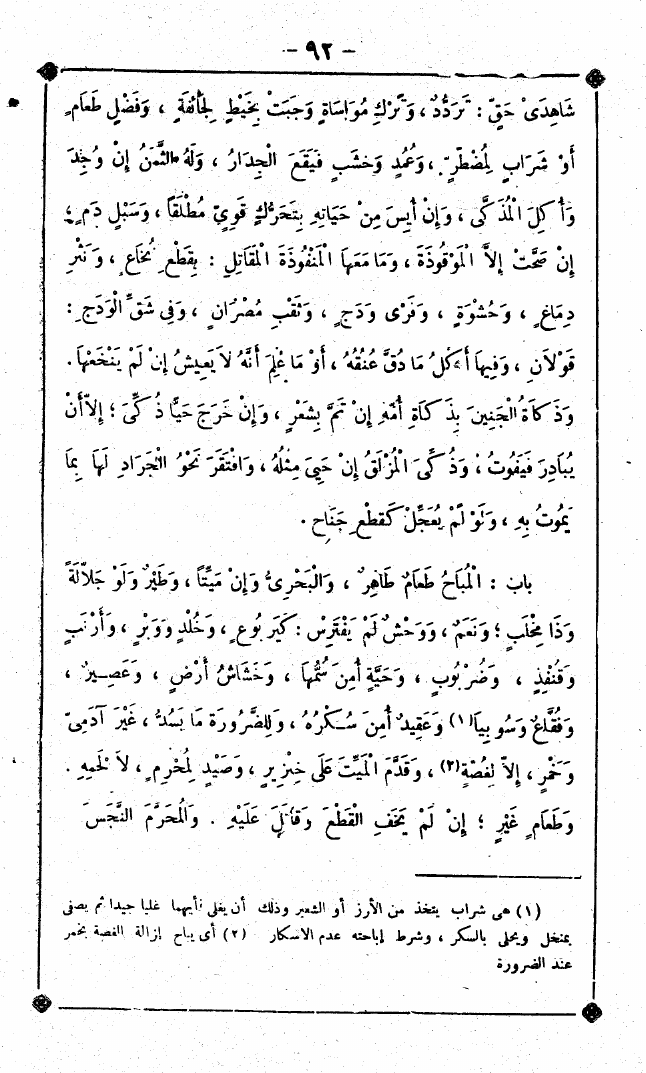 - ٩٢ -
شَاهِدَىْ حَقٍّ : تَرَدُّدٌ ، وَتَرْكِ مُوَاسَاةٍ وَجَبَتْ بِخَيْطٍ لِجَائِفَةٍ ، وَفَضْلِ طَعَامٍ
أَوْ شَرَابٍ لِمُضْطَرٍّ ، وَعُمُدٍ وَخَشَبٍ فَيَقَعَ الْجِدَارُ ، وَلَهُ الثَّمَنُ إِنْ وُجِدَ
وَأُكِلَ الْمُذَكَّى ، وَإِنْ أَيِسَ مِنْ حَيَاتِهِ بِتَحَرُّكٍ قَوِيٍّ مُطْلَقًا ، وَسَيْلِ دَمٍ ؛
إِنْ صَحَّتْ إِلاَّ الْمَوْقُوذَةَ ، وَمَا مَعَهَا الْمَنْفُوذَةَ الْمَقَاتِلِ : بِقَطْعِ نُخَاعٍ ، وَنَثْرِ
دِمَاغٍ ، وَحُشْوَةٍ ، وَفَرْىِ وَدَجٍ ، وَثَقْبِ مُصْرَانٍ ، وَفِي شَقِّ الْوَدَجِ :
قَوْلاَنِ ، وَفِيهَا أَكْلُ مَا دُقَّ عُنُقُهُ ، أَوْ مَا عُلِمَ أَنَّهُ لاَ يَعِيشُ إِنْ لَمْ يَنْخَعْهَا .
وَذَكَاةُ الْجَنِينِ بِذَكَاةِ أُمِّهِ إِنْ تَمَّ بِشَعْرٍ ، وَإِنْ خَرَجَ حَيًّا ذُكِّىَ ؛ إِلاَّ أَنْ
يُبَادِرَ فَيَفُوتُ ، وَذُكِّىَ الْمُزْلَقُ إِنْ حَيِىَ مِثْلُهُ ، وَافْتَقَرَ نَحْوُ الْجَرَادِ لَهَا بِمَا
يَمُوتُ بِهِ ، وَلَوْ لَمْ يُعَجِّلْ كَقَطْعِ جَنَاحٍ .
باب : الْمُبَاحُ طَعَامٌ طَاهِرٌ ، وَالْبَحْرِىُّ وَإِنْ مَيِّتًا ، وَطَيْرٌ وَلَوْ جَلاَّلَةً
وَذَا مِخْلَبٍ ؛ وَنَعَمٌ ، وَوَحْشٌ لَمْ يَفْتَرِسْ : كَيَرْبُوعٍ ، وَخُلْدٍ وَوَبْرٍ ، وَأَرْنَبٍ
وَقُنْفُذٍ ، وَضُرْبُوبٍ ، وَحَيَّةٍ أُمِنَ سُمُّهَا ، وَخَشَاشُ أَرْضٍ ، وَعَصِيرٌ ،
وَفُقَّاعٌ وَسُوبِيَا (١) وَعَقِيدٌ أُمِنَ سُكْرُهُ ، وَلِلضَّرُورَةِ مَا يَسُدُّ ، غَيْرَ آدَمِىٍّ
وَخَمْرٍ ، إِلاَّ لِغُصَّةٍ (٢) ، وَقَدَّمَ الْمَيِّتَ عَلَى خِنْزِيرٍ ، وَصَيْدٍ لِمُحْرِمٍ ، لاَ لَحْمِهِ .
وَطَعَامِ غَيْرٍ ؛ إِنْ لَمْ يَخَفِ الْقَطْعَ وَقَاتَلَ عَلَيْهِ . وَالْمُحَرَّمُ النَّجَسُ
(١) هى شراب يتخذ من الأرز أو الشعير وذلك أن يغلى أيهما غليا جيدا ثم يصفى
بمنخل ويحلى بالسكر ، وشرط إباحته عدم الاسكار (٢) أى يباح إزالة الغصة بخمر
عند الضرورة